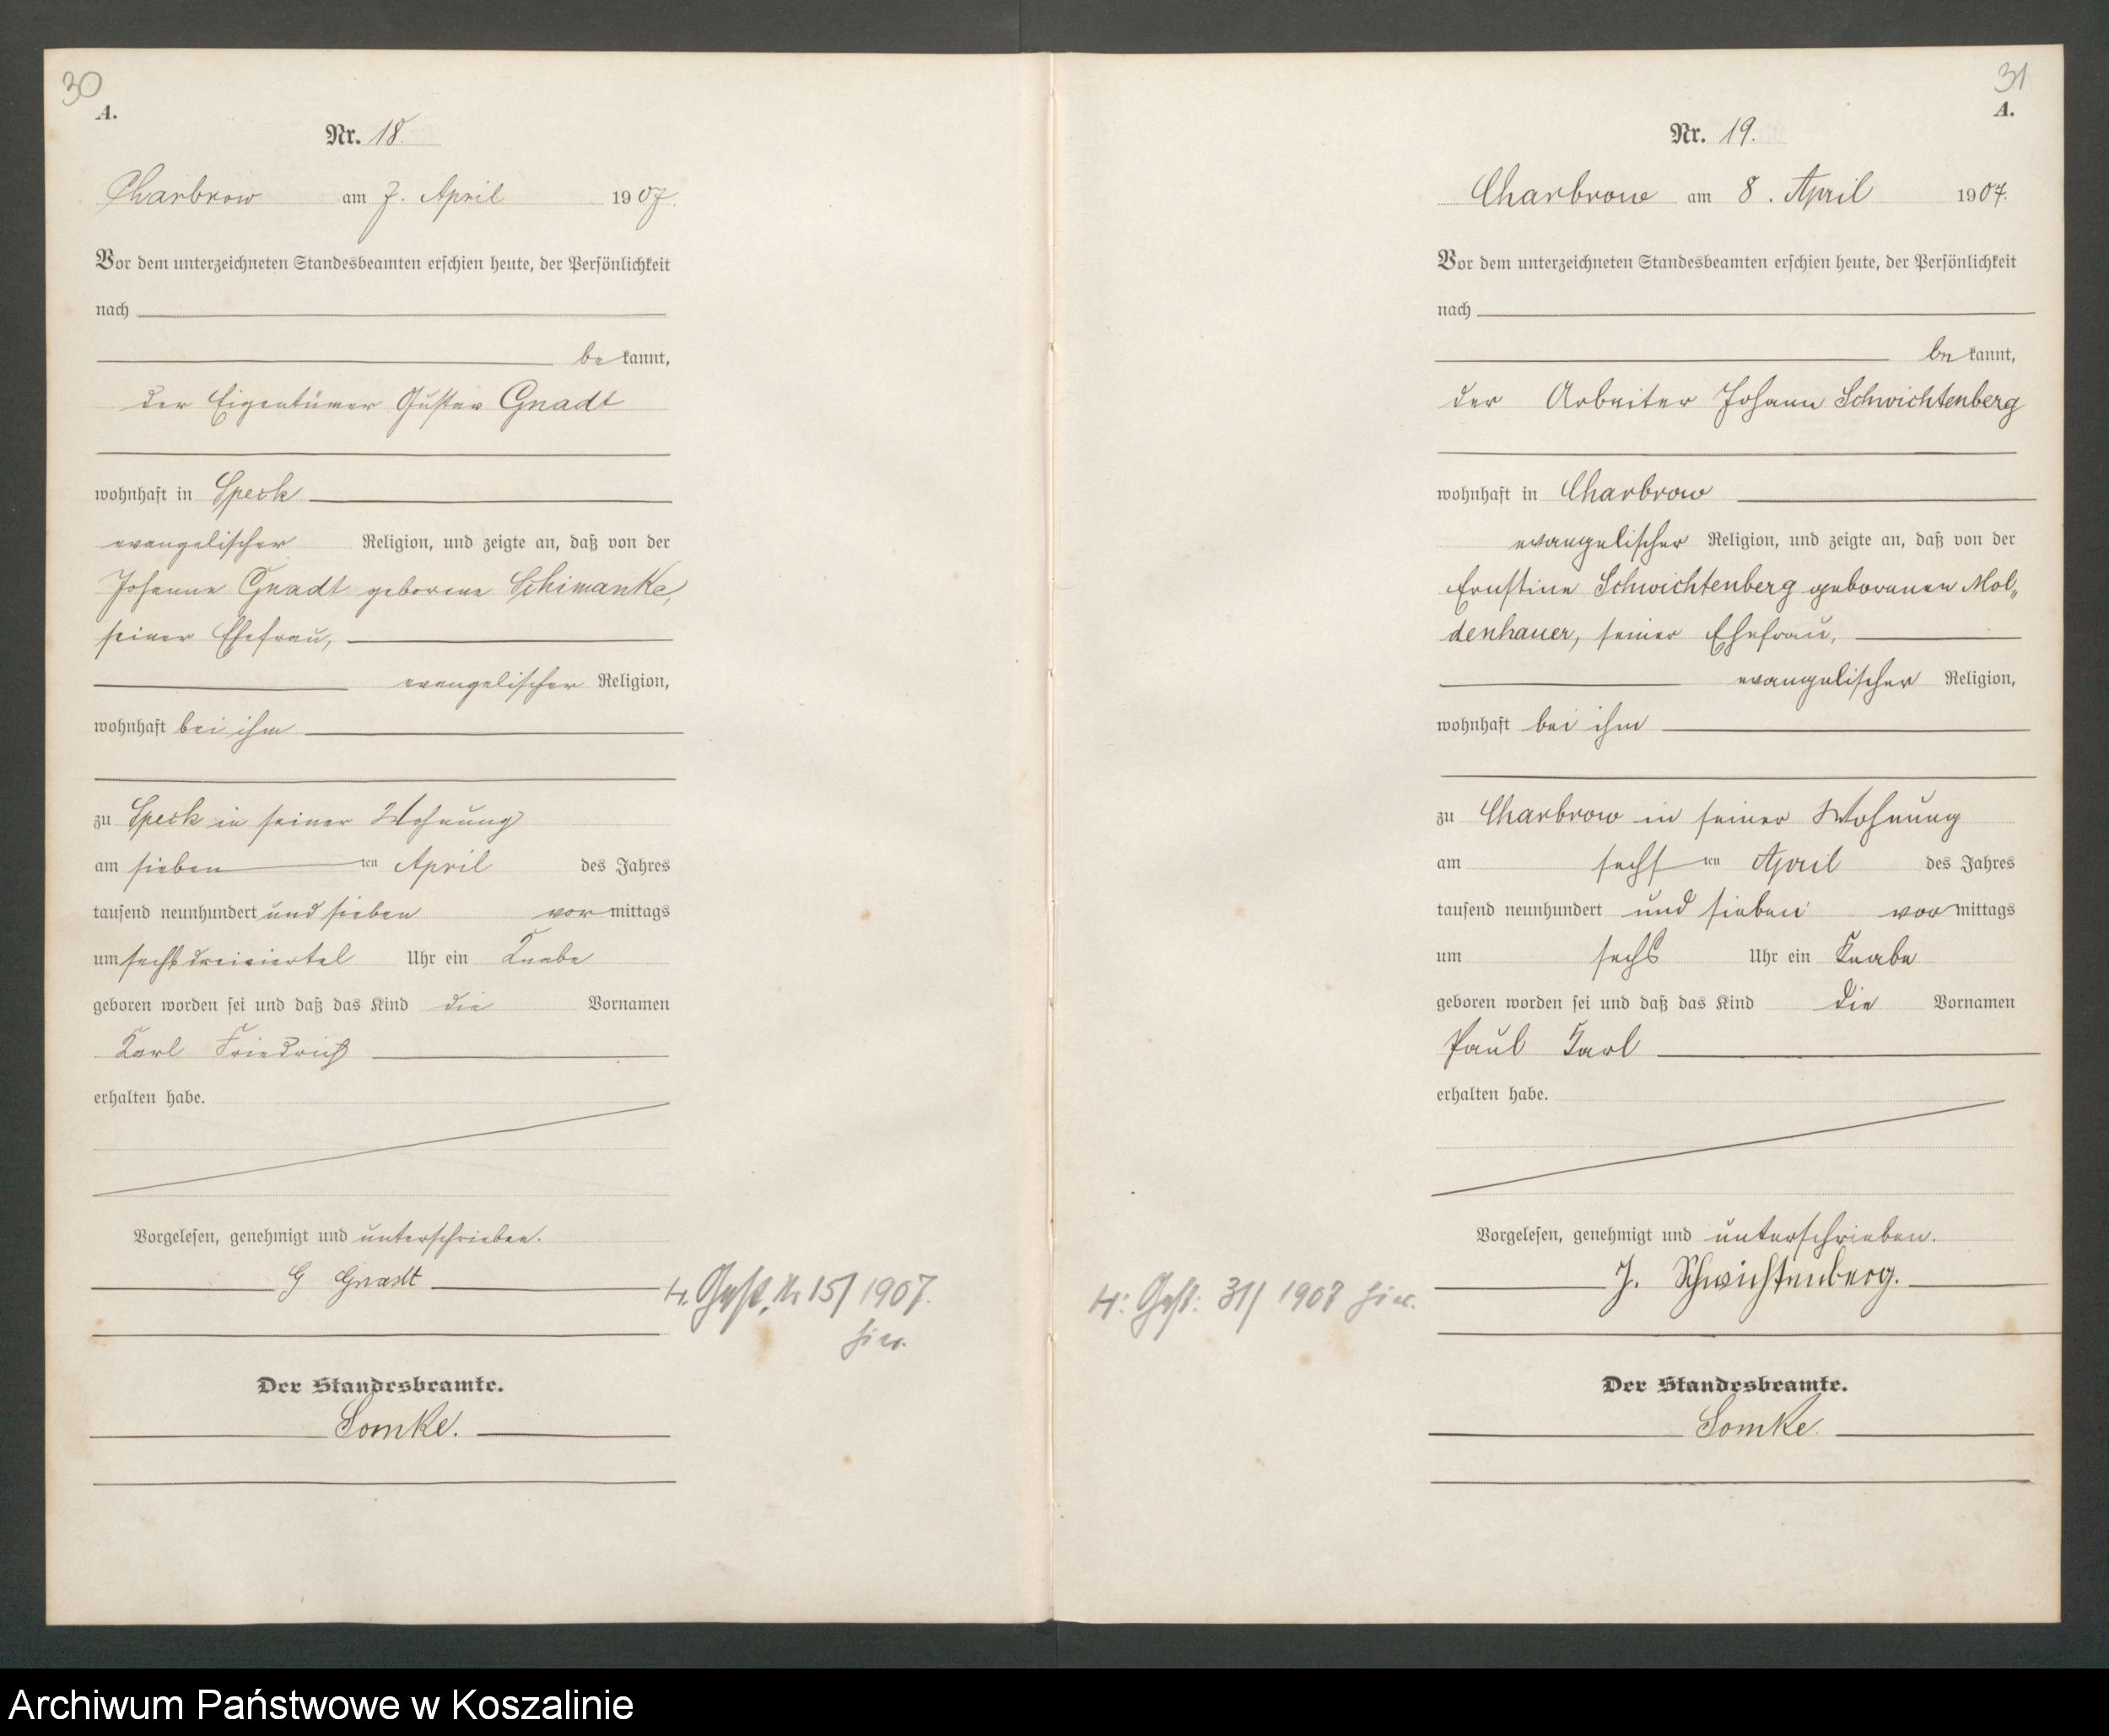 30
A.
Nr. 18.
Charbrow am 7. April 1907.
Vor dem unterzeichneten Standesbeamten erschien heute, der Persönlichkeit
nach
be kannt,
der Eigentümer Gustav Gnadt
wohnhaft in Speck
evangelischer Religion, und zeigte an, daß von der
Johanne Gnadt geborene Schimanke,
seiner Ehefrau,
evangelischer Religion,
wohnhaft bei ihm
zu Speck in seiner Wohnung
am sieben ten April des Jahres
tausend neunhundert und sieben vor mittags
um sechs dreiviertel Uhr ein Knabe
geboren worden sei und daß das Kind die Vornamen
Karl Friedrich
erhalten habe.
Vorgelesen, genehmigt und unterschrieben.
G Gnadt
15/1907.
Der Standesbeamte.
Somke.
31
A.
Nr. 19.
Charbrow am 8. April 1907.
Vor dem unterzeichneten Standesbeamten erschien heute, der Persönlichkeit
nach
be kannt,
der Arbeiter Johann Schwichtenberg
wohnhaft in Charbrow
evangelischer Religion, und zeigte an, daß von der
Ernstine Schwichtenberg geborenen Mol„
denhauer, seiner Ehefrau,
evangelischer Religion,
wohnhaft bei ihm
zu Charbrow in seiner Wohnung
am sechs ten April des Jahres
tausend neunhundert und sieben vor mittags
um sechs Uhr ein Knabe
geboren worden sei und daß das Kind die Vornamen
Paul Karl
erhalten habe.
Vorgelesen, genehmigt und unterschrieben.
J. Schwichtenberg.
31/
Der Standesbeamte.
Somke.
Archiwum Państwowe w Koszalinie